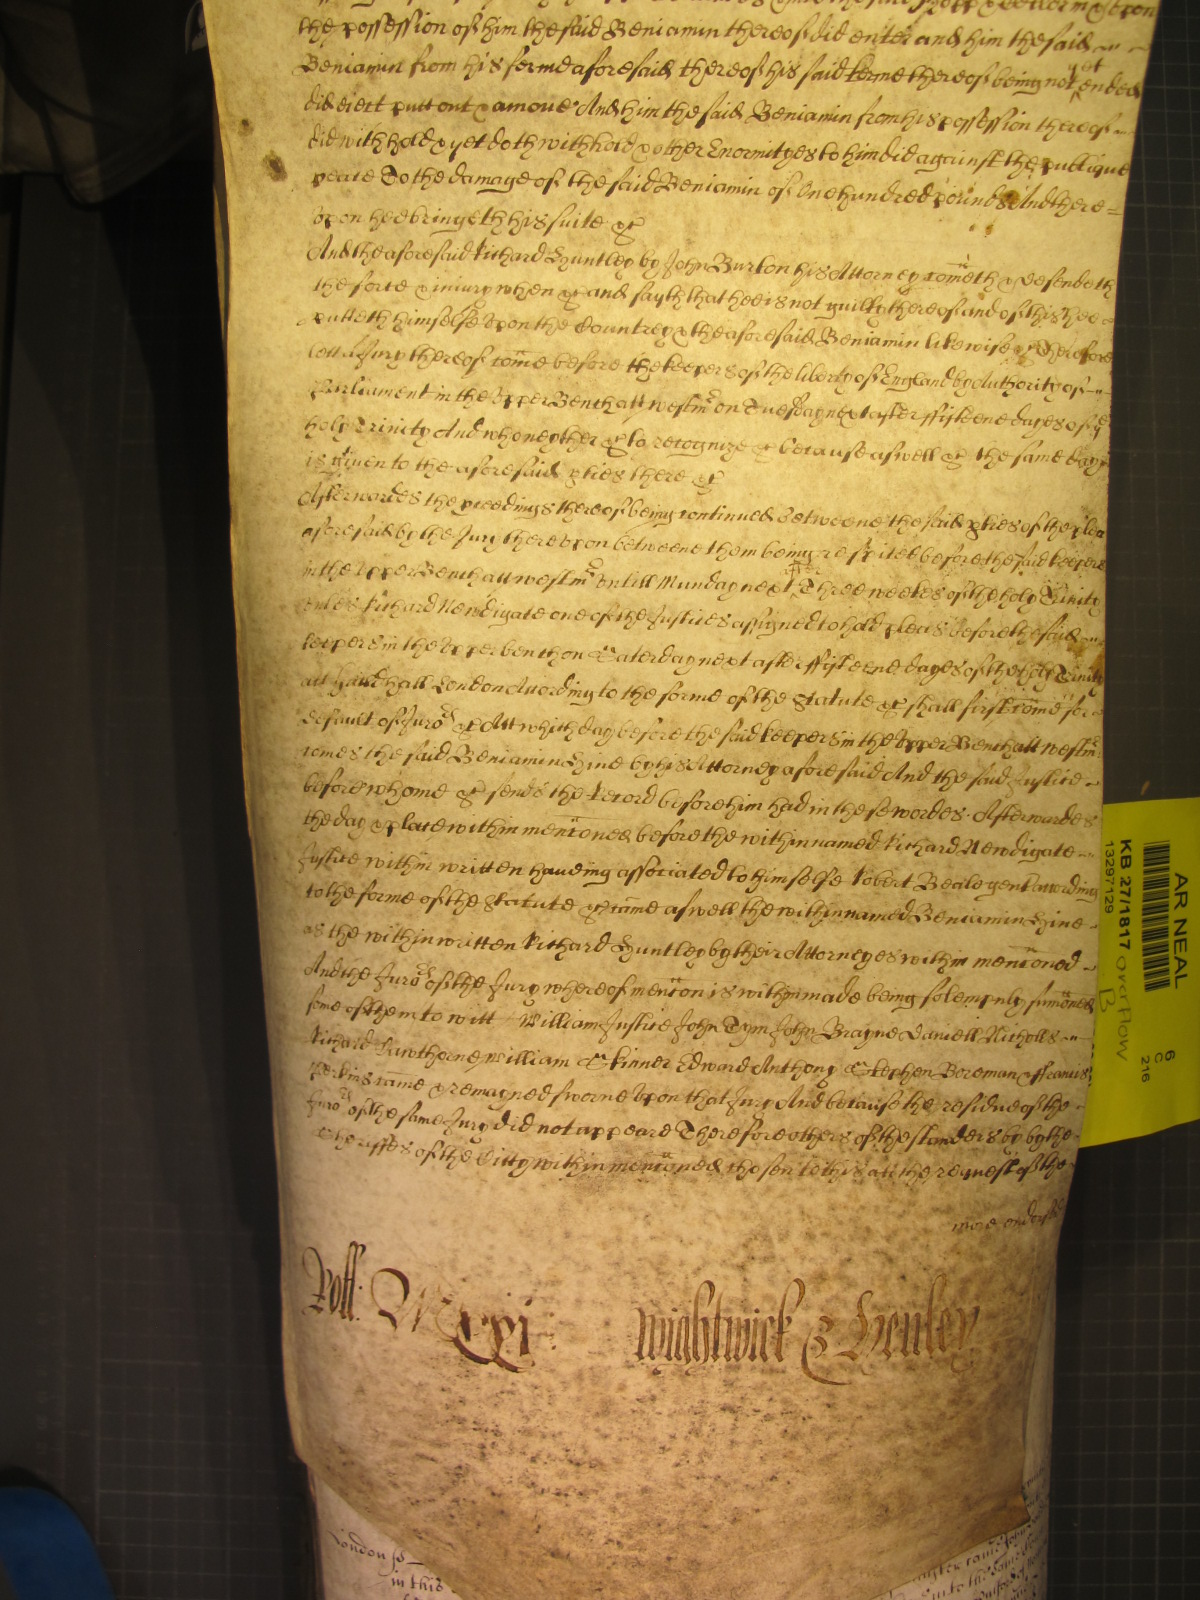 the possession of him the said Beniamin thereof did enter and him the said
Beniamin from his ferme aforesaid thereof his said terme thereof being not yet ended
did eiect putt out & amove And him the said Beniamin from his possession thereof
did withhold & yet doth withhold & other Enormityes to him did against the publique
peace To the damage of the said Beniamin of One hundred pounds And there=
upon hee bringeth his suite &c
And the aforesaid Richard Huntley by John Burton his Attorney cometh & defendeth
the force & iniury when &c and sayth that hee is not guilty thereof and of this hee
putteth himselfe upon the Countrey & the aforesaid Beniamin likewise &c Therefore
lett a Jury thereof come before the keepers of the liberty of England by Authority of
Parliament in the Upper Bench att Westmr on Tuesday next after fifteene dayes of the
holy Trinity And who neyther &c to recognize &c because aswell &c the same day
is given to the aforesaid pties there &c
Afterwardes the pceedings thereof being continued betweene the said pties of the plea
aforesaid by the Jury thereupon betweene them being respited before the said keepers
in the Upper Bench att Westmr untill Munday next after Three weekes of the holy Trinity
unles Richard Newdigate one of the Justices assigned to hold pleas before the said
keepers in the Upper bench on Saterday next after fifteene dayes of the holy Trinity
att Guildhall London According to the forme of the Statute &c shall first come for
default of Juro{rs} &c Att which day before the said keepers in the Upper Bench att Westmr
comes the said Beniamin Hine by his Attorney aforesaid And the said Justice
before whome &c sends the Record before him had in these wordes Afterwardes
the day & place within menconed before the within named Richard Newdigate
Justice within written haueing associated to himselfe Robert Beale gent according
to the forme of the Statute &c came aswell the within named Beniamin Hine
as the within written Richard Huntley by their Attorneyes within menconed
And the Juro{rs} of the Jury whereof mencon is within made being solempnly sumoned
some of them to witt William Justice John Tym John Brayne Daniell Nicholls
Richard Hawthorne William Skinner Edward Anthony Stephen Boreman ffrancis
Perkins came & remayned sworne upon that Jury And because the residue of the
Juro{rs} of the same Jury did not appeare Therefore others of the standers by by the
Sheriffes of the Citty within menconed chosen to this att the request of the
more endorsed
Roll: Mxxi Wightwick & Henley
AR NEAL
KB 27/1817 overflow B
13297129
6
C
216
London ss
in this